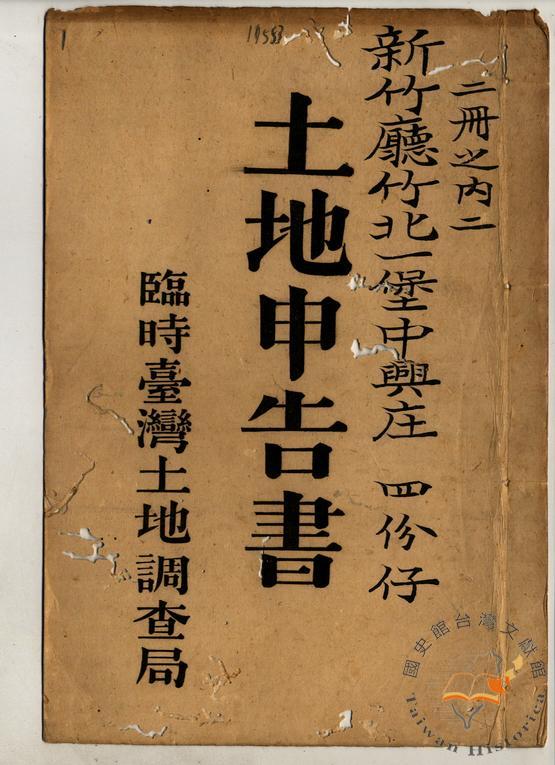 二冊之內二
新竹廳竹北一堡中興庄 四份仔
土地申告書
臨時臺灣土地調查局
1
國史館台灣文獻館
Taiwan Historica